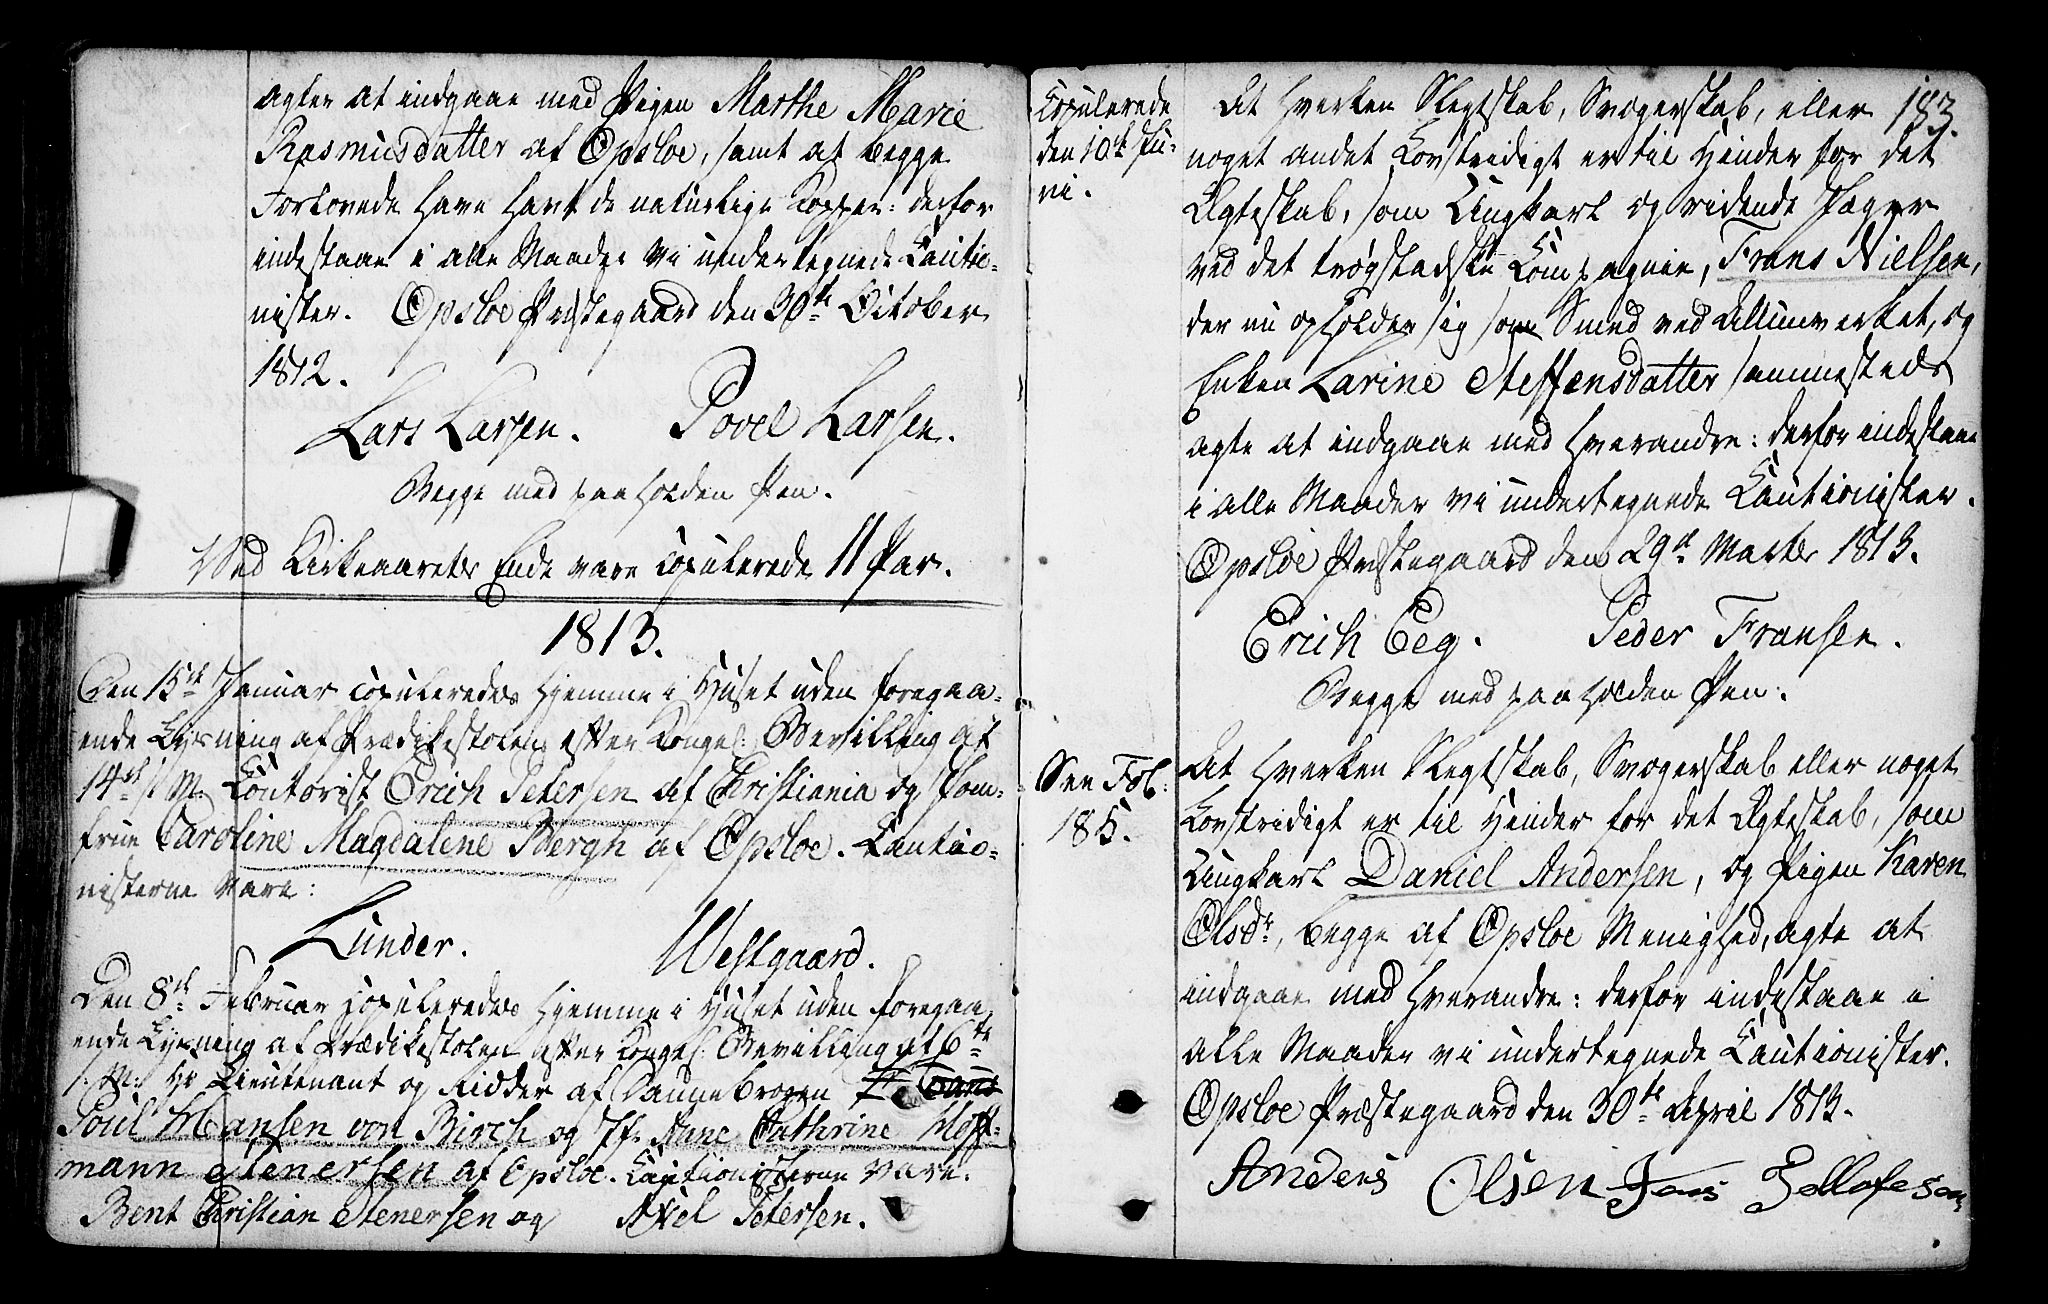 agter at indgaae med Pigen Marthe Marie
Rasmusdatter af Opsloe, samt at begge
Forlovede have havt de naturlige Kopper: derfor
indestaae i alle Maader vi undertegnede Cautio-
nister. Opsloe Præstegaard den 30te October
1812.
Lars Larsen. Povel Larsen.
Begge med paaholden Pen.
Ved Kirkeaarets Ende vare copulerede 11 Par.
1813.
Den 15de Januar copuleredes hjemme i Huset uden foregaa-
ende Lysning af Prædikestolen efter Kongel: Bevilling af
14de s. M. Contorist Erich Petersen af Christiania og Jom-
frue Caroline Magdalene Bergh af Opsloe. Cautio-
nisterne vare:
Lunder. Westgaard.
Den 8de Februar copuleredes hjemme i Huset uden foregaa-
ende Lysning af Prædikestolen efter Kongel: Bevilling af 6te
s. M. Hr Lieutenant og Ridder af Dannebrogen
Poul Hansen von Birch og Jfr. Anne Cathrine Hoff-
mann Stenersen af Opsloe. Cautionisterne vare.
Bent Christian Stenersen og Axel Petersen.
183.
Copulerede
den 10de Ju-
ni.
At hverken Slegtskab, Svogerskab, eller
noget andet Lovstridigt er til Hinder for det
Ægteskab, som Ungkarl og ridende Jæger
ved det trøgstadske Compagnie, Frans Nielsen,
der nu opholder sig som Smed ved Allunverket, og
Enken Larine Steffensdatter sammesteds
agte at indgaae med hverandre: derfor indestaae
i alle Maader vi undertegnede Cautionister.
Opsloe Præstegaard den 29de Martz 1813.
Erich Eeg. Peder Fransen.
Begge med paaholden Pen.
See Fol:
185.
At hverken Slegtskab, Svogerskab eller noget
Lovstridigt er til Hinder for det Ægteskab, som
Ungkarl Daniel Andersen, og Pigen Karen
Olsdr, begge af Opsloe Menighed, agte at
indgaae med hverandre: derfor indestaae i
alle Maader vi undertegnede Cautionister.
Opsloe Præstegaard den 30te April 1813.
Anders Olsen Jens